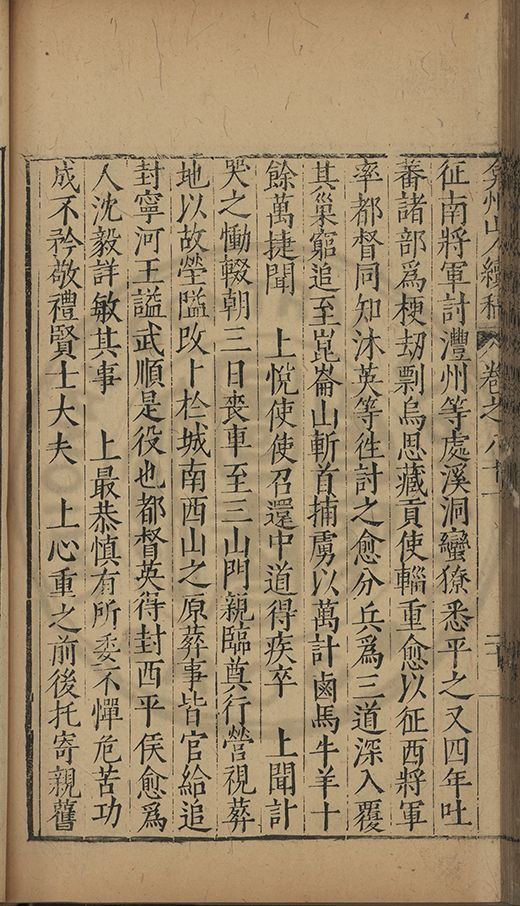 弇州山人續稿 卷之八十一 二十一
征南將軍討灃州等處溪洞蠻獠悉平之又四年吐
蕃諸部爲梗刼剽烏思藏貢使輜重愈以征西將軍
率都督同知沐英等徃討之愈分兵爲三道深入覆
其巢窮追至崑崙山斬首捕虜以萬計鹵馬牛羊十
餘萬捷聞 上悅使使召還中道得疾卒 上聞計
哭之慟輟朝三日喪車至三山門親臨奠行營視葬
地以故塋隘改卜於城南西山之原葬事皆官給追
封寧河王諡武順是役也都督英得封西平侯愈爲
人沈毅詳敏其事 上最恭慎有所委不憚危苦功
成不矜敬禮賢士大夫 上心重之前後托寄親舊